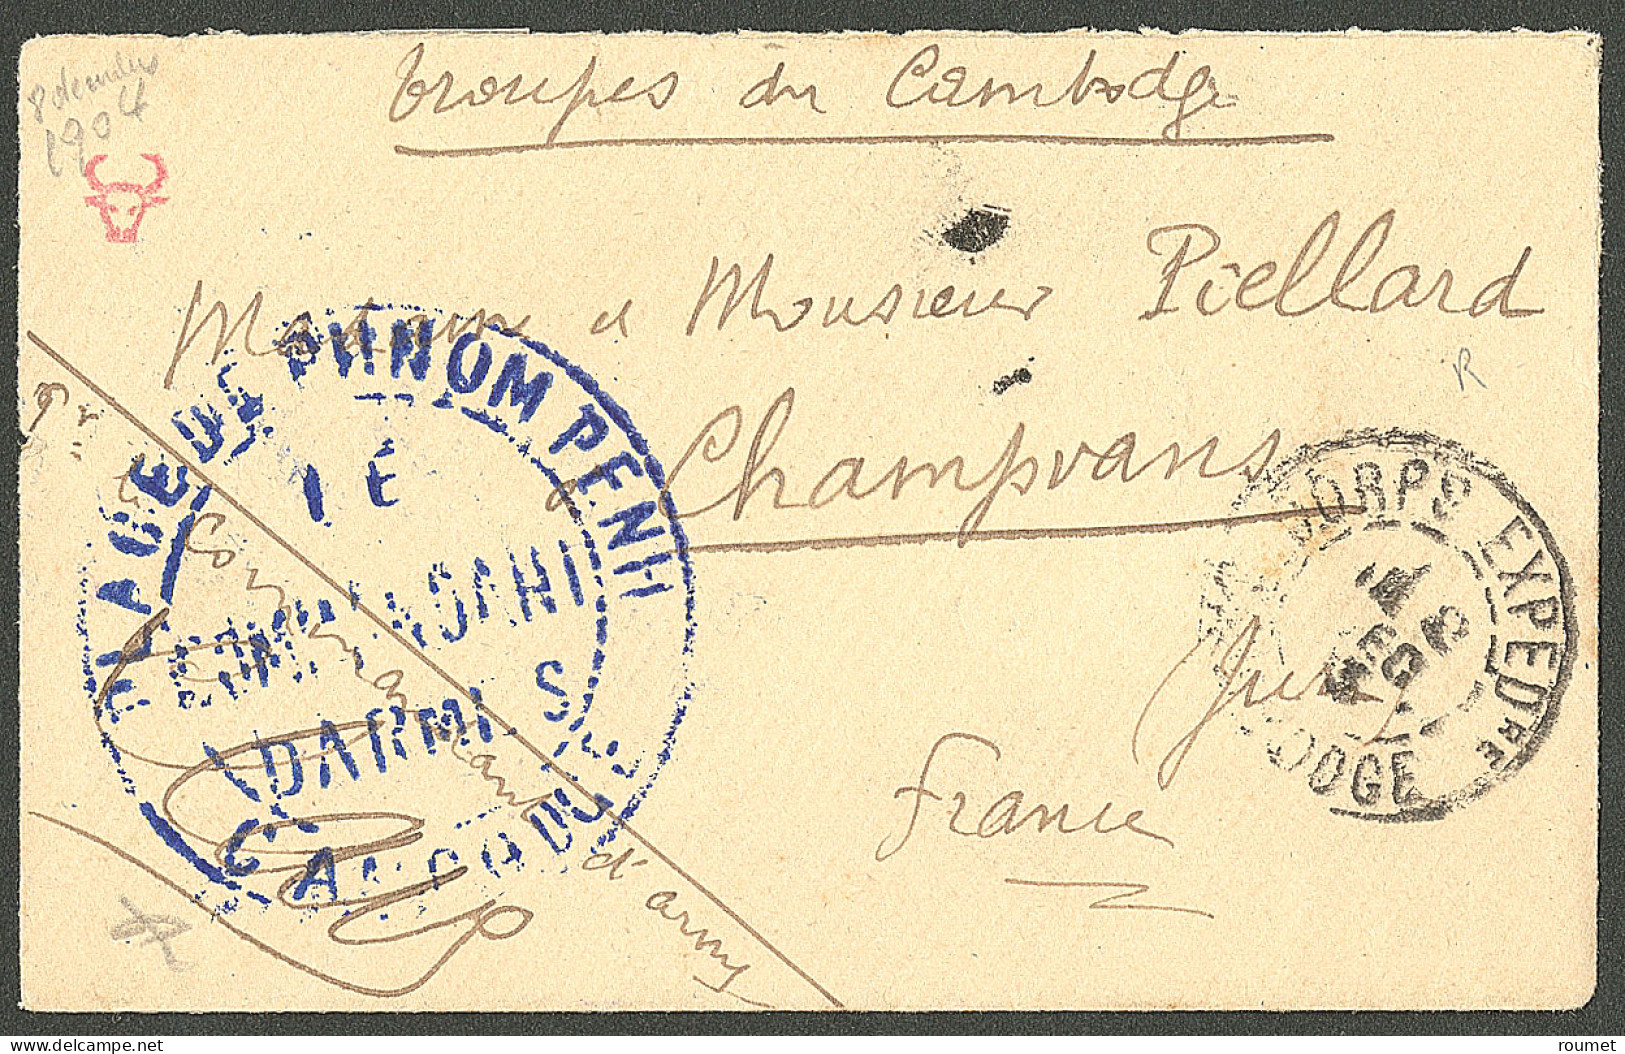 8 decembre
1904
Troupes du Cambodge
Madame et Monsieur Piellard
R
à Champvans
Jura
France
PLACE DE PHNOM PENH
LE
COMMANDANT
D'ARMES
CAMBODGE
Le Commandant d'armes
CORPS EXPEDRE
CAMBODGE
roumet